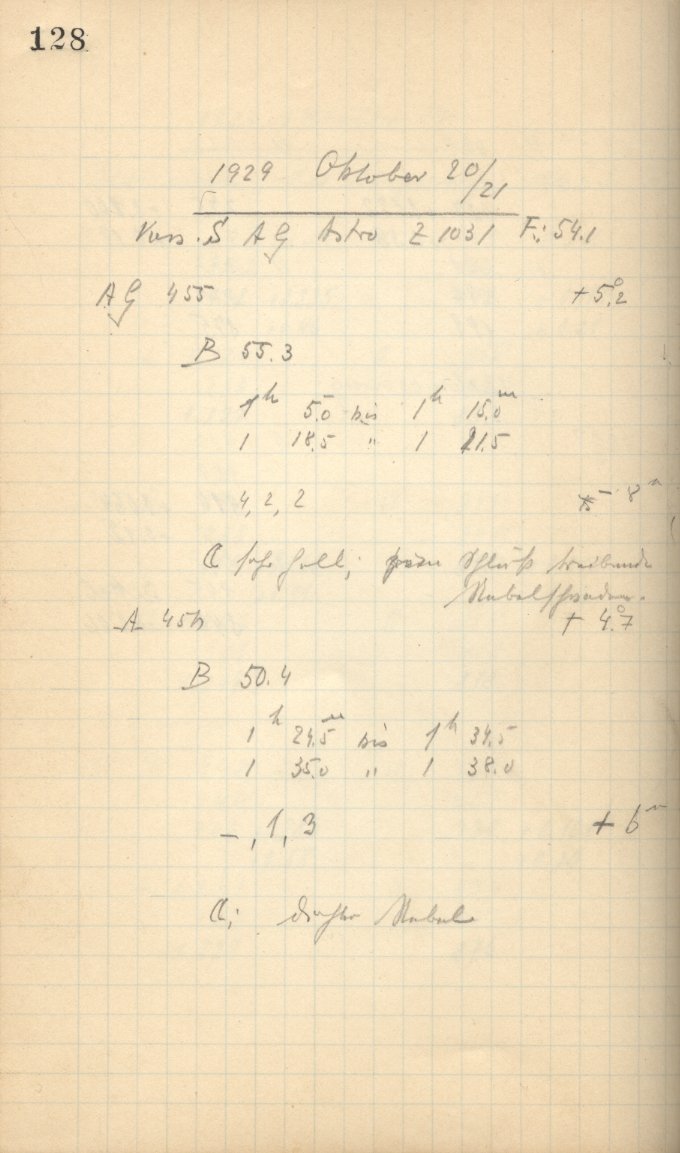 128
1929 Oktober 20/21
AG Astro Z 1031 F: 54.1
AG 455 +5°.2
B 55.3
1h 5.0 bis 1h 15.0m
1 18.5 " 1 21.5
4, 2, 2 - 8m
☾ sehr hell; Schluß treibende
Nebelschwaden.
A 456 + 4°.7
B 50.4
1h 24.5m bis 1h 34.5
1 35.0 " 1 38.0
-, 1, 3 + 6m
☾; dichter Nebel